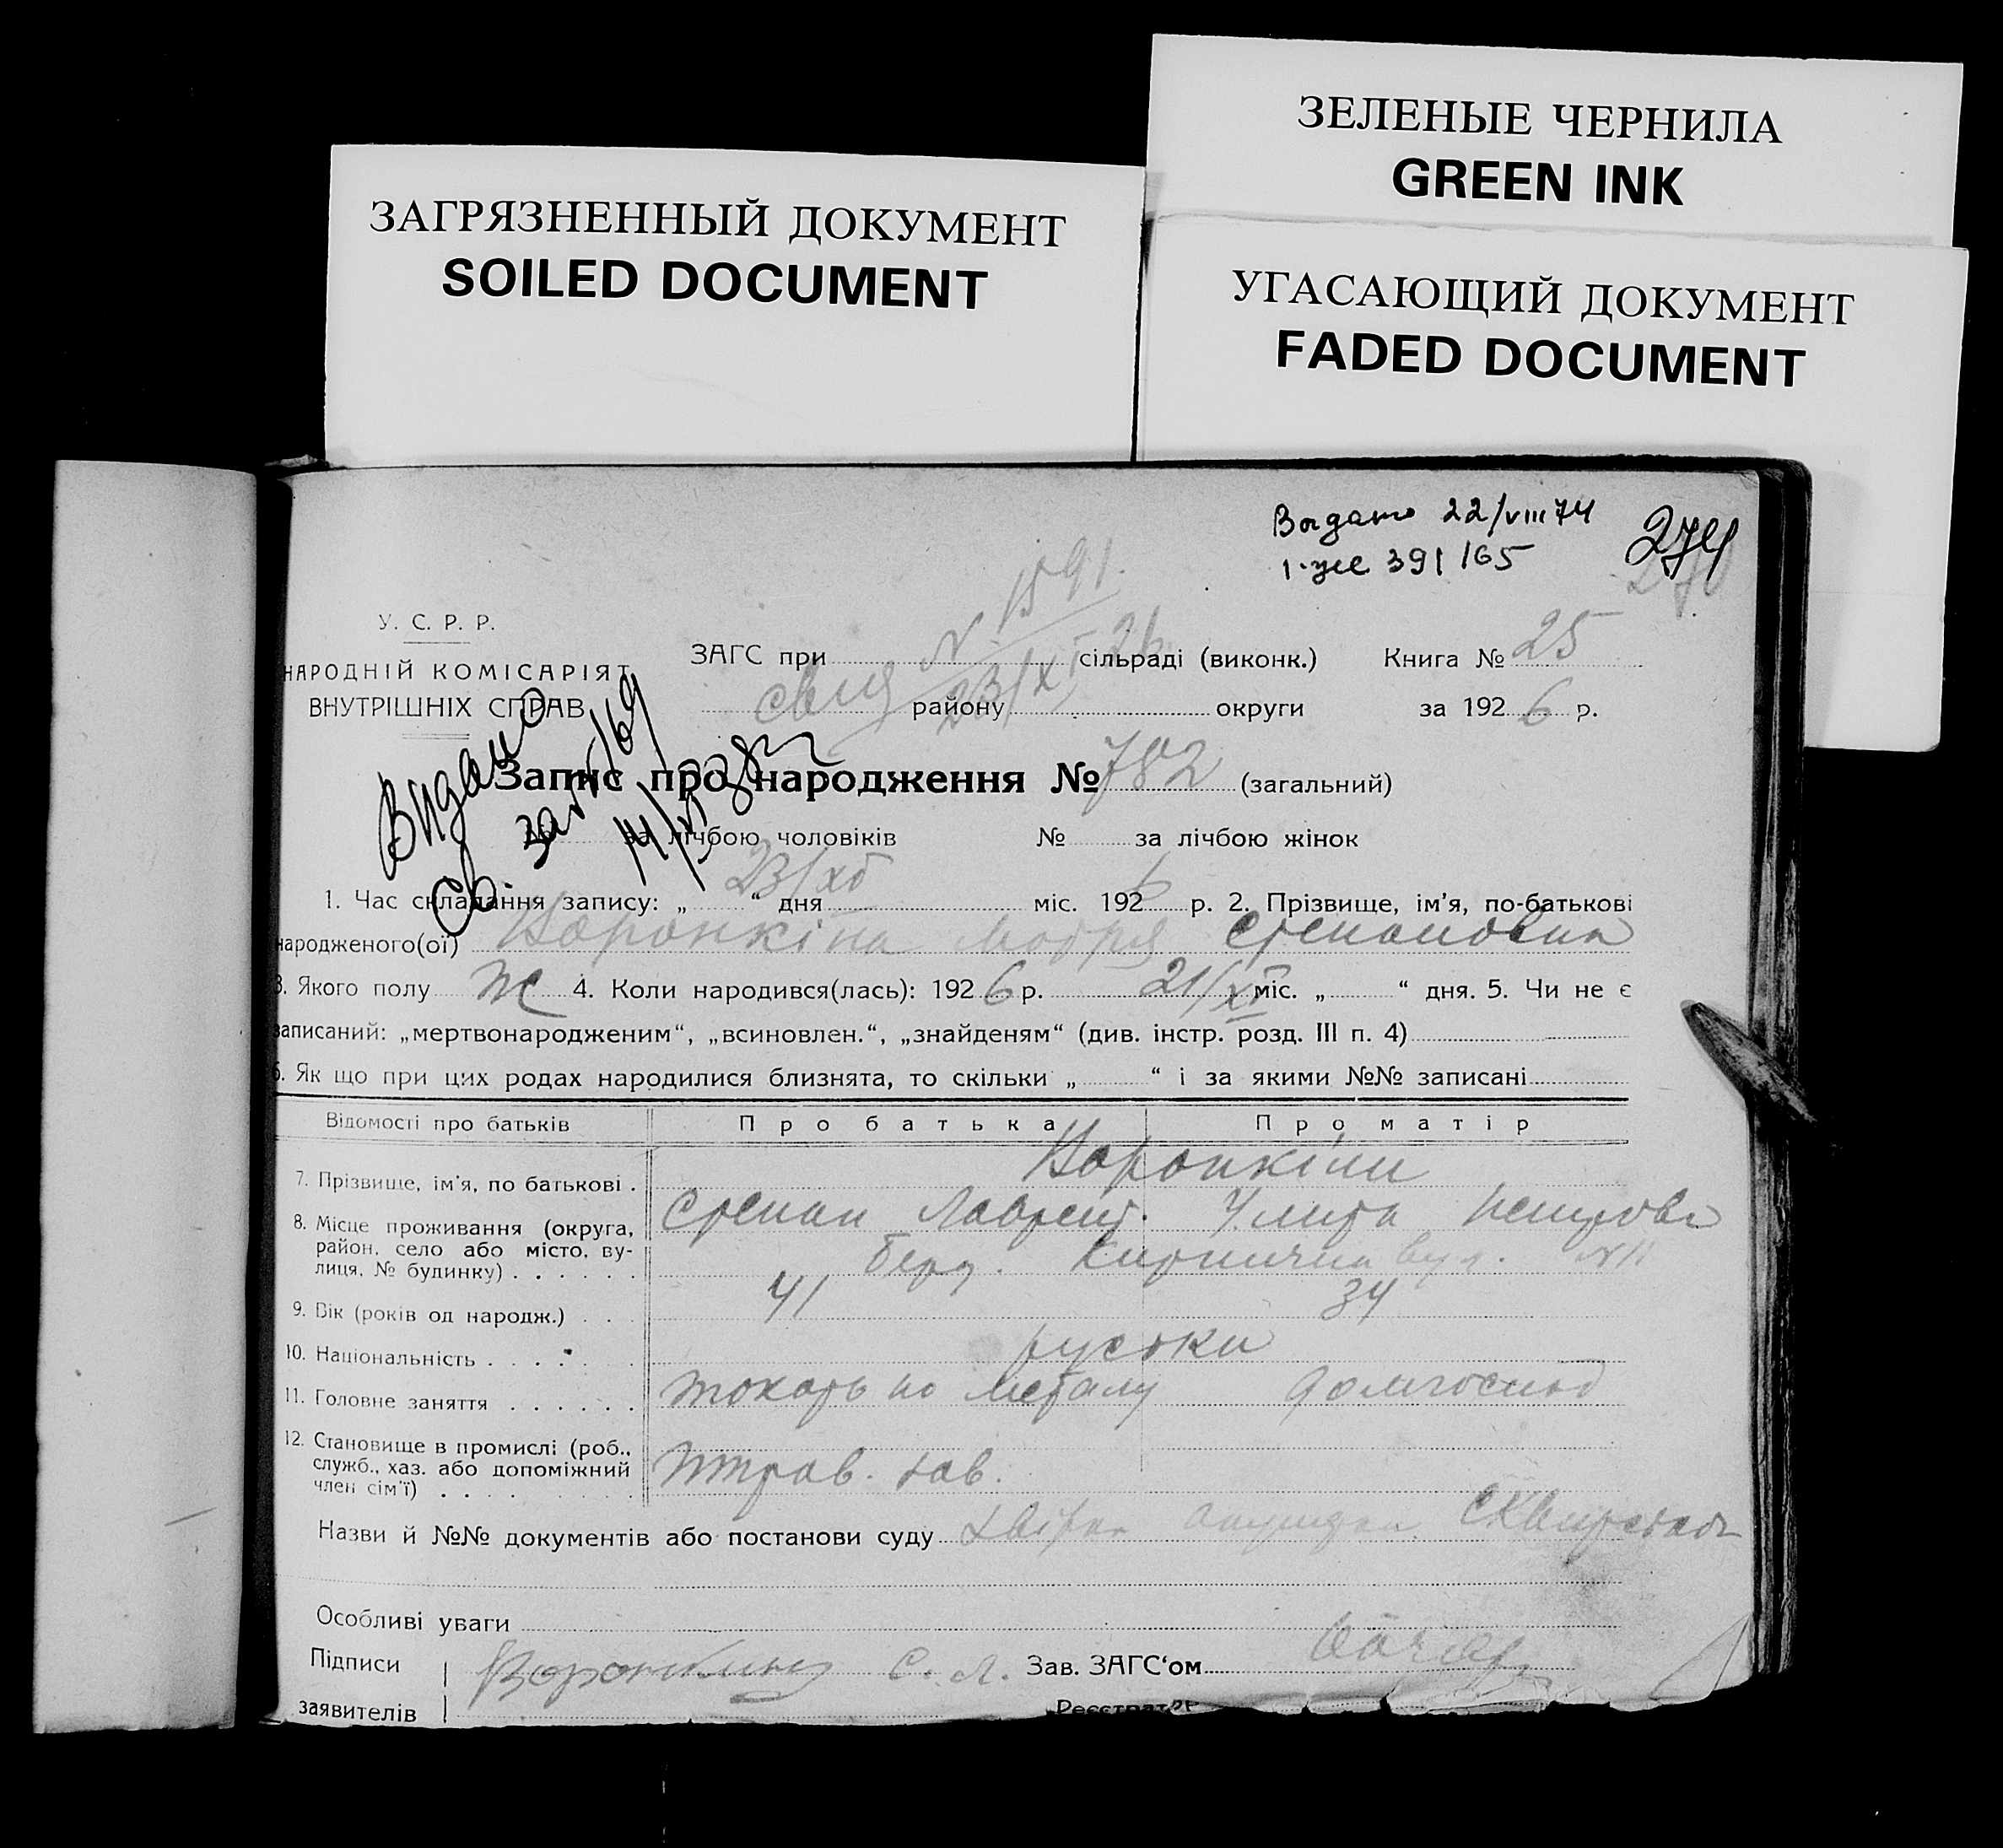 ЗЕЛЕНЫЕ ЧЕРНИЛА
GREEN INK
ЗАГРЯЗНЕННЫЙ ДОКУМЕНТ
SOILED DOCUMENT
УГАСАЮЩИЙ ДОКУМЕНТ
FADED DOCUMENT
22/VIII 74
391/65
274
270
1591
N 23/XI 26
У. С. Р. Р.
НАРОДНІЙ КОМІСАРІЯТ
ВНУТРІШНІХ СПРАВ
ЗАГС при сільраді (виконк.) Книга № 25
району округи за 1926 р.
Видано
Св.
Запис про народження № 782 (загальний)
№ за лічбою чоловіків № за лічбою жінок
1. Час складання запису: „ “ дня 23/XI міс. 1926 р. 2. Прізвище, ім’я, по-батькові
народженого(ої) Воронкіна Мотря Степановна
3. Якого полу ж 4. Коли народився(лась): 1926 р. 21/XI міс. „ “ дня. 5. Чи не є
записаний: „мертвонародженим“, „всиновлен.“, „знайденям“ (див. інстр. розд. III п. 4)
6. Як що при цих родах народилися близнята, то скільки „ “ і за якими №№ записані
Відомості про батьків Про батька Про матір
7. Прізвище, ім’я, по батькові . Воронкіни
Степан Лаврент. Улита
8. Місце проживання (округа,
район, село або місто, ву-
лиця, № будинку) . . . . . . Берд. Кирпична вул.
9. Вік (років од народж.) . . . 41 34
10. Національність . . . . . руськи
11. Головне заняття . . . . . . токарь по металу домгоспод
12. Становище в промислі (роб.,
служб., хаз. або допоміжний
член сім’ї) . . . . зав.
Назви й №№ документів або постанови суду
Особливі уваги
Підписи Воронкин С. Л. Зав. ЗАГС‘ом
заявителів Реєстратор